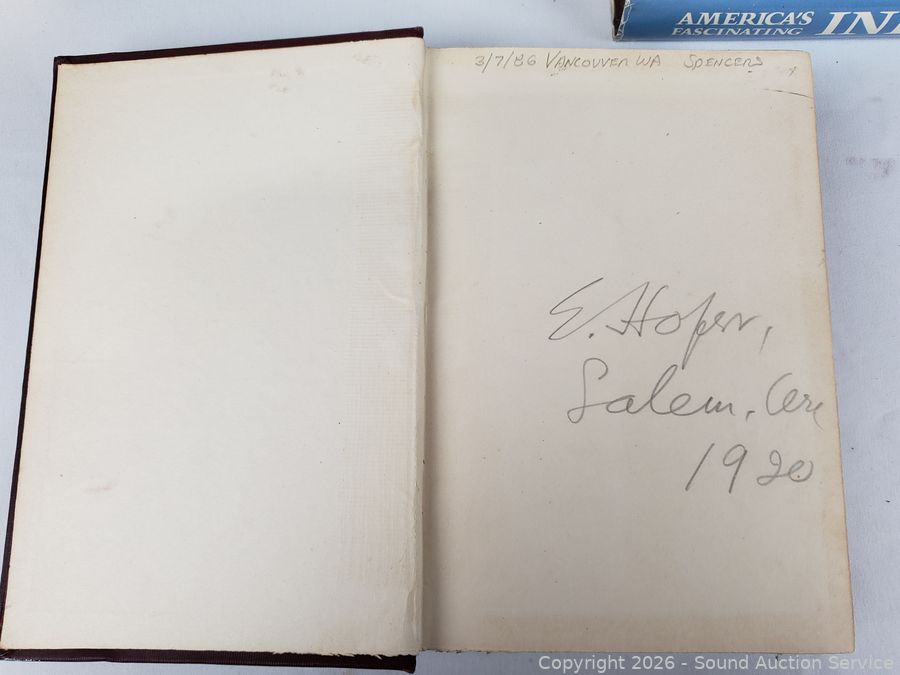 AMERICA'S
FASCINATING
3/7/86 VANCOUVER WA SPENCERS
E. Hofer,
Salem, Ore
1920
Copyright 2026 - Sound Auction Service